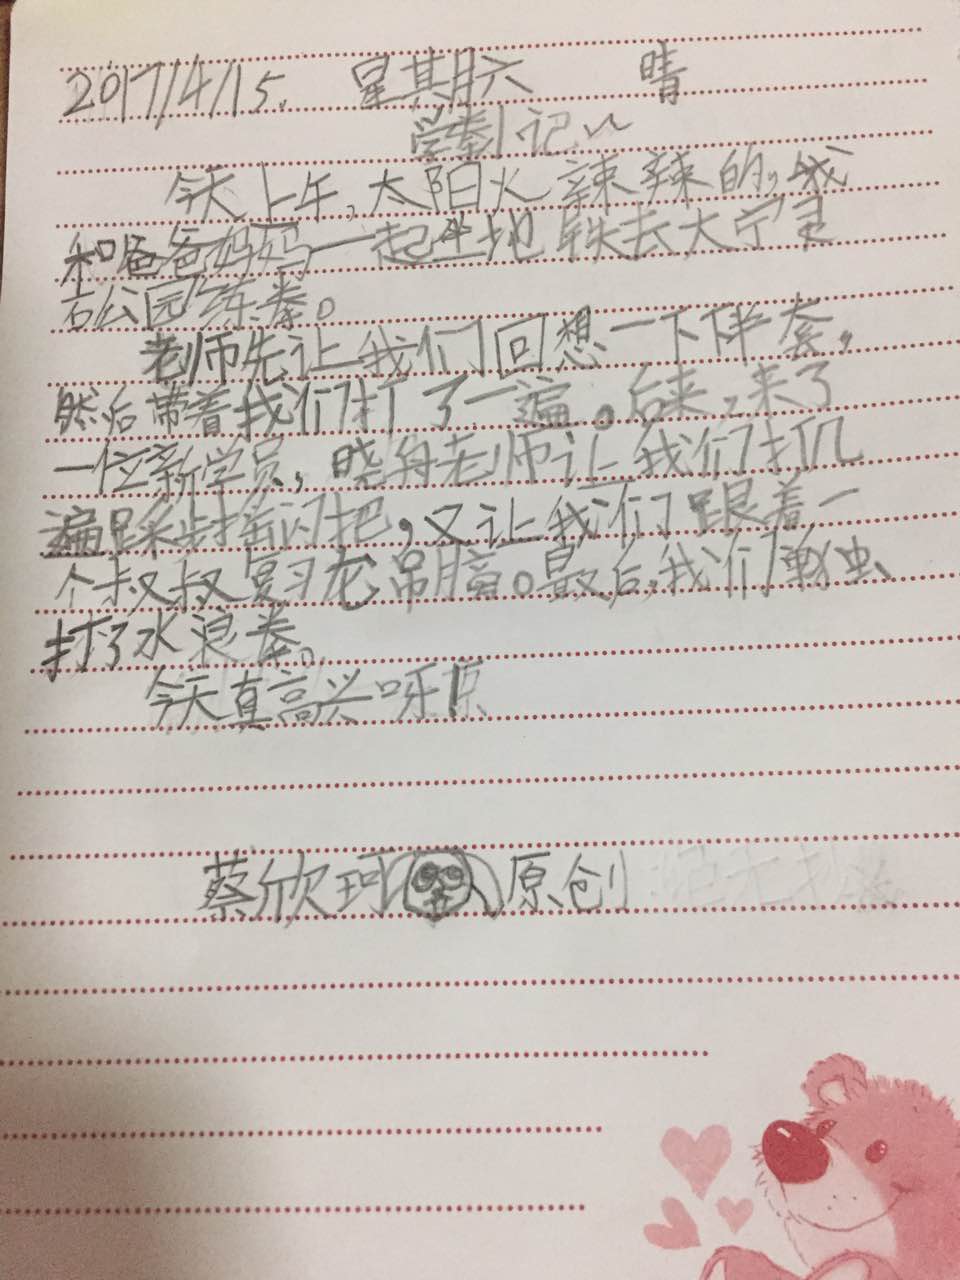 2017/4/15. 星期六 晴
学拳小记
今天上午,太阳火辣辣的,我
和爸爸妈妈一起坐地铁去大宁灵
石公园练拳。
老师先让我们回想一下半套,
然后带着我们打了一遍。后来,来了
一位新学员,晓舟老师让我们打几
遍踩步摇闪把,又让我们跟着一
个叔叔复习龙吊膀。最后,我们单独
打了水浪拳。
今天真高兴呀!
蔡欣珂 原创